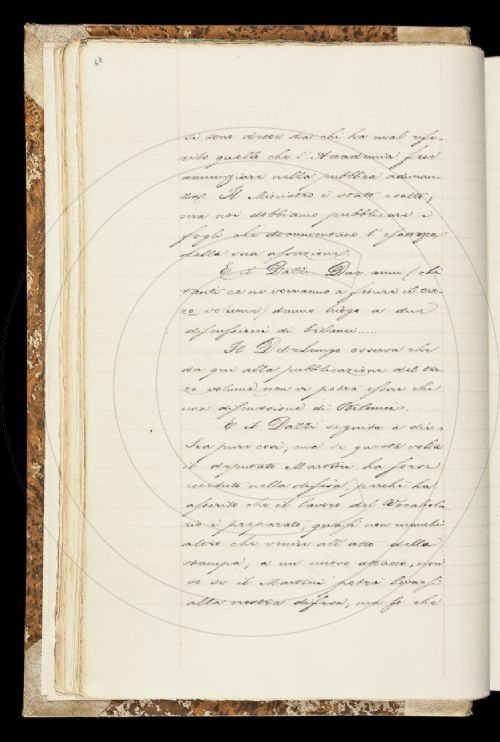 68
si sono dette da chi ha mal rife-
rito quello che l'Accademia fece
annunziare nella pubblica adunan-
za. Il Ministro è stato esatto,
ma noi dobbiamo pubblicare i
fogli che documentano l'esattezza
della sua asserzione.
E il Dazzi. Due anni (chè
tanti ce ne vorranno a finire il ter-
zo volume) danno luogo a due
discussioni di bilanci.....
Il Del Lungo osserva che
da qui alla pubblicazione del ter-
zo volume non vi potrà essere che
una discussione di Bilanci.
E il Dazzi seguita a dire:
Sia pure così, ma se questa volta
il deputato Martini ha forse
ecceduto nella difesa, perchè ha
asserito che il lavoro del Vocabola-
rio è preparato, quasi non manchi
altro che venire all'atto della
stampa, a un nuovo attacco, non
so se il Martini potrà levarsi
alla nostra difesa, ma so che